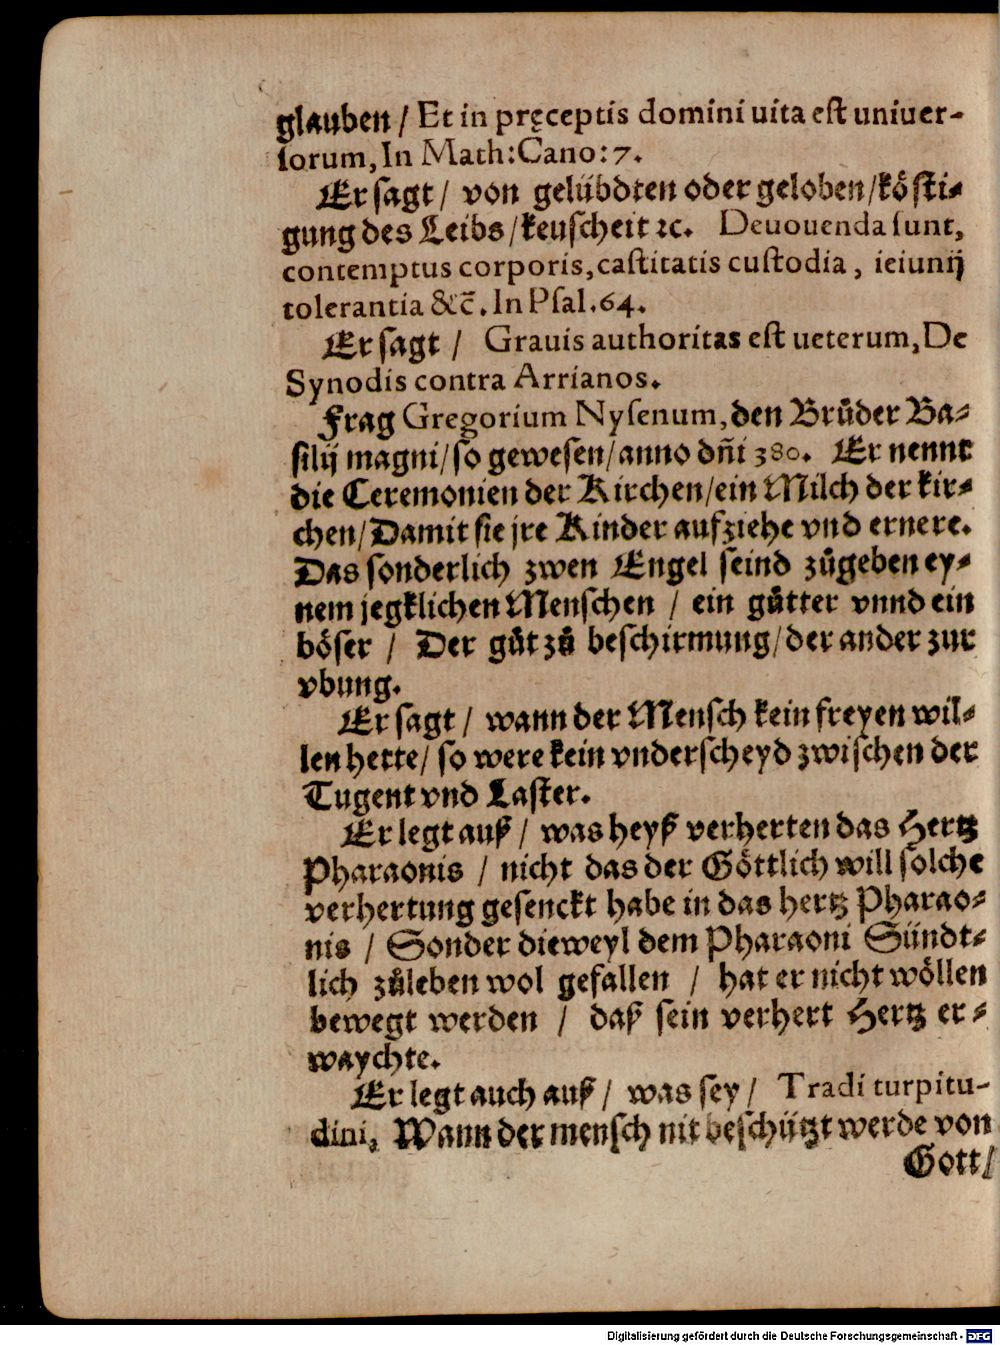 glauben / Et in pręceptis domini uita eſt uniuer-
ſorum, In Math: Cano: 7.
Er ſagt / von gelübdten oder geloben / köſti⸗
gung des Leibs / keuſcheit ꝛc. Deuouenda ſunt,
contemptus corporis, caſtitatis cuſtodia, ieiunij
tolerantia &c̄. In Pſal. 64.
Er ſagt / Grauis authoritas eſt ueterum, De
Synodis contra Arrianos.
Frag Gregorium Nyſenum, den Brůder Ba⸗
ſilij magni / ſo geweſen / anno dñi 380. Er nennt
die Ceremonien der Kirchen / ein Milch der kir⸗
chen / Damit ſie jre Kinder aufziehe vnd ernere.
Das ſonderlich zwen Engel ſeind zůgeben ey⸗
nem jegklichen Menſchen / ein gůtter vnnd ein
böſer / Der gůt zů beſchirmung / der ander zur
vbung.
Er ſagt / wann der Menſch kein freyen wil⸗
len hette / ſo were kein vnderſcheyd zwiſchen der
Tugent vnd Laſter.
Er legt auß / was heyß verherten das Hertz
Pharaonis / nicht das der Göttlich will ſolche
verhertung geſenckt habe in das hertz Pharao⸗
nis / Sonder dieweyl dem Pharaoni Sündt⸗
lich zůleben wol gefallen / hat er nicht wöllen
bewegt werden / daß ſein verhert Hertz er⸗
waychte.
Er legt auch auß / was ſey / Tradi turpitu-
dini, Wann der menſch nit beſchützt werde von
Gott /
Digitalisierung gefördert durch die Deutsche Forschungsgemeinschaft - DFG